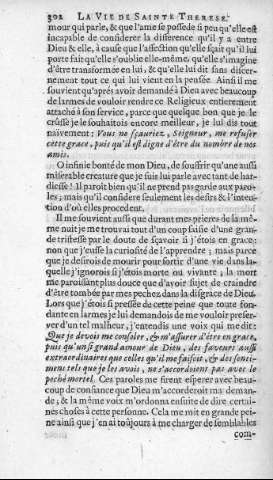 302 LA VIE DE SAINTE THERESE,
mour qui parle, & que l'ame se possede si peu qu'elle est
incapable de considerer la difference qu'il y a entre
Dieu & elle, à cause que l'affection qu'elle sçait qu'il luy
porte fait qu'elle s'oublie elle-même, qu'elle s'imagine
d'être transformée en lui, & qu'elle lui dit sans discer-
nement tout ce qui lui vient en la pensée. Ainsi je me
souvient qu'aprés avoir demandé à Dieu avec beaucoup
de larmes de vouloir rendre ce Religieux entierement
attaché à son service, parce que quelque bon que je le
crusse je le souhaitois encore meilleur, je lui dis tout
naïvement : Vous ne sçauriez, Seigneur, me refuser
cette grace, puis qu'il est digne d'être du nombre de nos
amis.
O infinie bonté de mon Dieu, de souffrir qu'une aussi
miserable creature que je suis lui parle avec tant de har-
diesse ! Il paroît bien qu'il ne prend pas garde aux paro-
les; mais qu'il considere seulement les desirs & l'inten-
tion d'où elles procedent.
Il me souvient aussi que durant mes prieres de la mê-
me nuit je me trouvai tout d'un coup saisie d'une gran-
de tristesse par le doute de sçavoir si j'étois en grace:
non que j'eusse la curiosité de l'apprendre ; mais parce
que je desirois de mourir pour sortir d'une vie dans la-
quelle j'ignorois si j'étois morte ou vivante ; la mort
me paroissant plus douce que d'avoir sujet de craindre
d'être tombée par mes pechez dans la disgrace de Dieu.
Lors que j'étois si pressée de cette peine que toute fon-
dante en larmes je lui demandois de me vouloir preser-
ver d'un tel malheur, j'entendis une voix qui me dit:
Que je devois me consoler, & m'assurer d'être en grace,
puis qu'un si grand amour de Dieu, des faveurs aussi
extraordinaires que celles qu'il me faisoit, & des senti-
mens tels que je les avois, ne s'accordoient pas avec le
peché mortel. Ces paroles me firent esperer avec beau-
coup de confiance que Dieu m'accorderoit ma deman-
de; & la même voix m'ordonna ensuite de dire certai-
nes choses à cette personne. Cela me mit en grande pei-
ne ainsi que j'en ai toûjours à me charger de semblables
com-